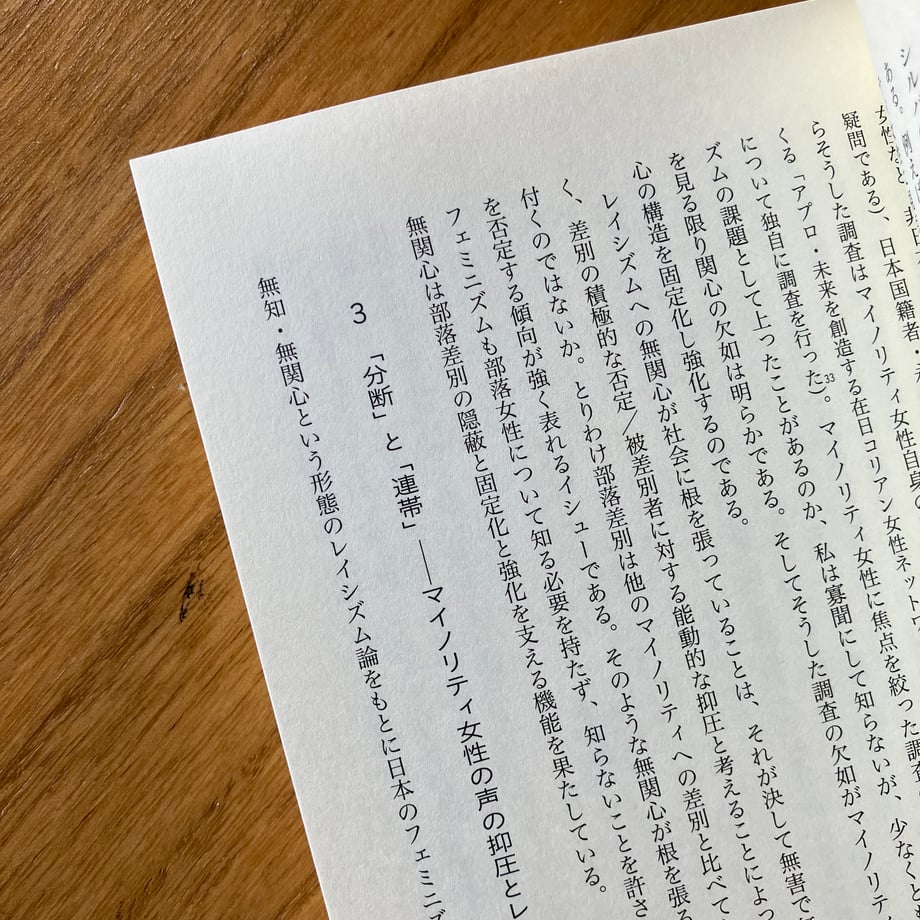 シル
ある。例え
女性だと
疑問である)、日本国籍者・
らそうした調査はマイノリティ女性自身
くる「アプロ・未来を創造する在日コリアン女性ネットワ
について独自に調査を行った33)。マイノリティ女性に焦点を絞った調査
ズムの課題として上ったことがあるのか、私は寡聞にして知らないが、少なくとも
を見る限り関心の欠如は明らかである。そしてそうした調査の欠如がマイノリテ
心の構造を固定化し強化するのである。
レイシズムへの無関心が社会に根を張っていることは、それが決して無害で
く、差別の積極的な否定/被差別者に対する能動的な抑圧と考えることによっ
付くのではないか。とりわけ部落差別は他のマイノリティへの差別と比べて
を否定する傾向が強く表れるイシューである。そのような無関心が根を張る
フェミニズムも部落女性について知る必要を持たず、知らないことを許さ
無関心は部落差別の隠蔽と固定化と強化を支える機能を果たしている。
3 「分断」と「連帯」――マイノリティ女性の声の抑圧とレ
無知・無関心という形態のレイシズム論をもとに日本のフェミニズ